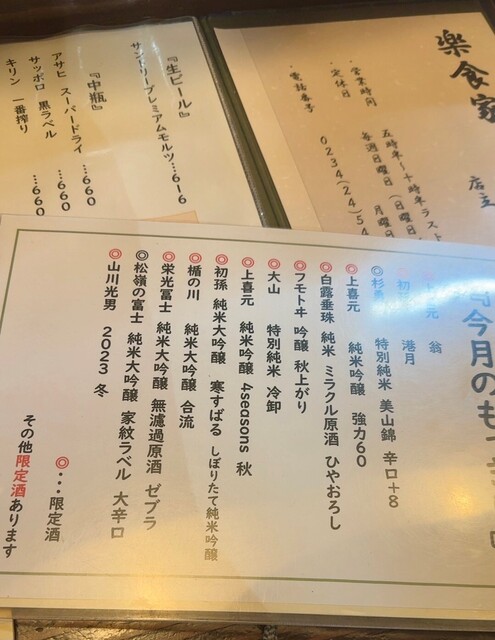 『生ビール』
サントリープレミアムモルツ…616
『中瓶』
アサヒ スーパードライ …660
サッポロ 黒ラベル …660
キリン 一番搾り
楽食家
店主
・営業時間
五時半〜十時半ラスト
・定休日
毎週日曜日
・電話番号
0234(24)54
『今月の
翁
港月
特別純米 美山錦 辛口+8
◎上喜元 純米吟醸 強力60
◎白露垂珠 純米 ミラクル原酒 ひやおろし
◎フモトヰ 吟醸 秋上がり
◎大山 特別純米 冷卸
◎上喜元 純米吟醸 4seasons 秋
◎初孫 純米大吟醸 寒すばる しぼりたて純米吟醸
◎楯の川 純米大吟醸 合流
◎栄光冨士 純米大吟醸 無濾過原酒 ゼブラ
◎松嶺の富士 純米大吟醸 家紋ラベル 大辛口
◎山川光男 2023 冬
◎…限定酒
その他限定酒あります